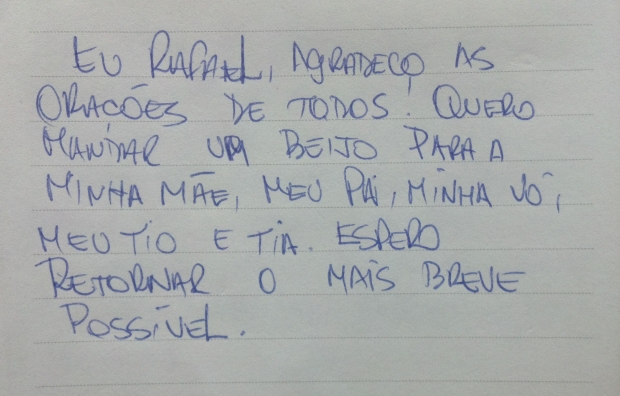 EU RAFAEL, AGRADEÇO AS
ORAÇÕES DE TODOS. QUERO
MANDAR UM BEIJO PARA A
MINHA MÃE, MEU PAI, MINHA VÓ,
MEU TIO E TIA. ESPERO
RETORNAR O MAIS BREVE
POSSÍVEL.